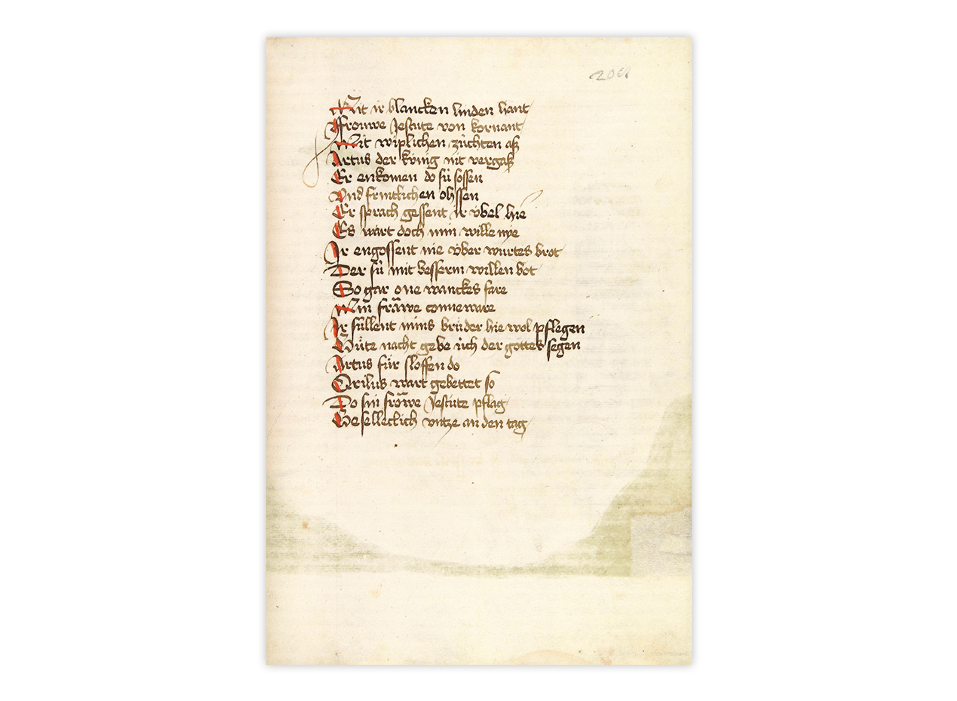 204
Mit ir blancken linden hant
Frouwe Jescute von kornant
Mit wiplichen zuͤchten aß
Artus der kuͤnig nit vergaß
Er enkomen do suͤ sossen
Vnd fruntlichen ossen
Er sprach gessent ir vbel hie
Es wart doch min wille nye
Ir engossent nie vber wurtes brot
Der suͤ mit besserm willen bot
So gar one wanckes fare
Min froͧwe conneware
Ir suͤllent mins bruͤder hie wol pflegen
Guͦte nacht gebe uͤch der gottes segen
Artus fuͤr sloffen do
Orilus wart gebettet so
Do sin froͧwe Jescute pflag
Geselleclich vntze an den tag